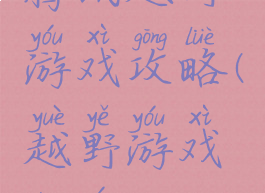 yóu xì gōng lüè
游戏攻略(
yuè yě yóu xì
越野游戏